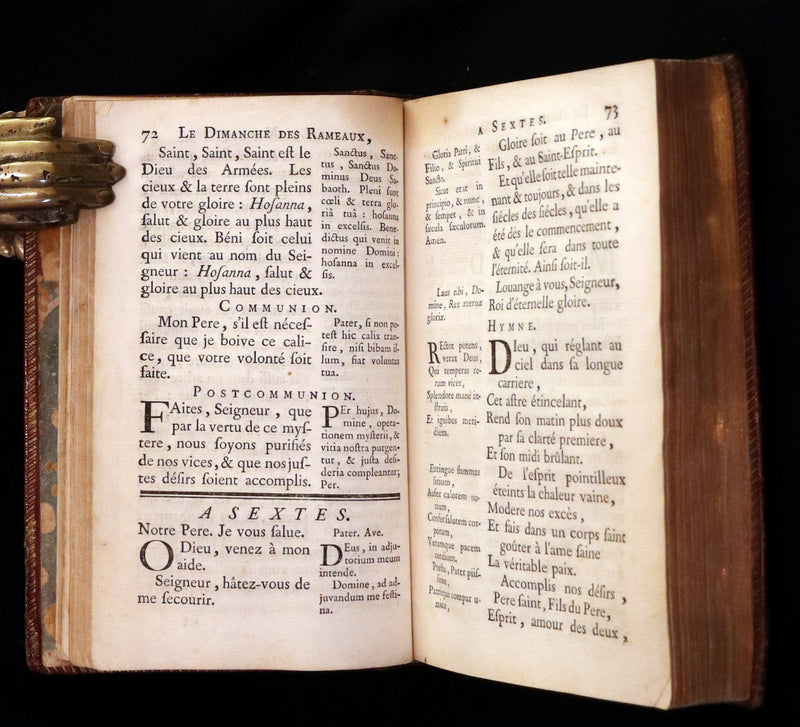 72 LE DIMANCHE DES RAMEAUX,
Saint, Saint, Saint eſt le
Dieu des Armées. Les
cieux & la terre ſont pleins
de votre gloire : Hoſanna,
ſalut & gloire au plus haut
des cieux. Béni ſoit celui
qui vient au nom du Sei-
gneur : Hoſanna, ſalut &
gloire au plus haut des cieux.
Sanctus, Sanc-
tus, Sanctus Do-
minus Deus Sa-
baoth. Pleni ſunt
cœli & terra glo-
riâ tuâ : hoſanna
in excelſis. Bene-
dictus qui venit in
nomine Domini :
hoſanna in excel-
ſis.
COMMUNION.
Mon Pere, s'il eſt néceſ-
ſaire que je boive ce cali-
ce, que votre volonté ſoit
faite.
Pater, ſi non po-
teſt hic calix tran-
ſire, niſi bibam il-
lum, fiat voluntas
tua.
POSTCOMMUNION.
FAites, Seigneur, que
par la vertu de ce myſ-
tere, nous ſoyons purifiés
de nos vices, & que nos juſ-
tes déſirs ſoient accomplis.
PEr hujus, Do-
mine, opera-
tionem myſterii, &
vitia noſtra purgen-
tur, & juſta deſi-
deria compleantur;
Per.
A SEXTES.
Notre Pere. Je vous ſalue.
O Dieu, venez à mon
aide.
Seigneur, hâtez-vous de
me ſecourir.
Pater. Ave.
DEus, in adju-
torium meum
intende.
Domine, ad ad-
juvandum me feſti-
na.
A SEXTES. 73
Gloria Patri, &
Filio, & Spiritui
Sancto.
Sicut erat in
principio, & nunc,
& ſemper, & in
ſæcula ſæculorum.
Amen.
Laus tibi, Do-
mine, Rex æternæ
gloriæ.
Gloire ſoit au Pere, au
Fils, & au Saint-Eſprit.
Et qu'elle ſoit telle mainte-
nant & toujours, & dans les
ſiécles des ſiécles, qu'elle a
été dès le commencement,
& qu'elle ſera dans toute
l'éternité. Ainſi ſoit-il.
Louange à vous, Seigneur,
Roi d'éternelle gloire.
HYMNE.
REctor potens,
verax Deus,
Qui temperas re-
rum vices,
Splendore mane in-
ſtruis,
Et ignibus meri-
diem.
Extingue flammas
litium,
Aufer calorem no-
xium,
Confer ſalutem cor-
porum,
Veramque pacem
cordium.
Præſta, Pater piiſ-
ſime,
Patrique compar u-
nice,
DIeu, qui réglant au
ciel dans ſa longue
carriere,
Cet aſtre étincelant,
Rend ſon matin plus doux
par ſa clarté premiere,
Et ſon midi brûlant.
De l'eſprit pointilleux
éteints la chaleur vaine,
Modere nos excès,
Et fais dans un corps ſaint
goûter à l'ame ſaine
La véritable paix.
Accomplis nos déſirs,
Pere ſaint, Fils du Pere,
Eſprit, amour des deux,